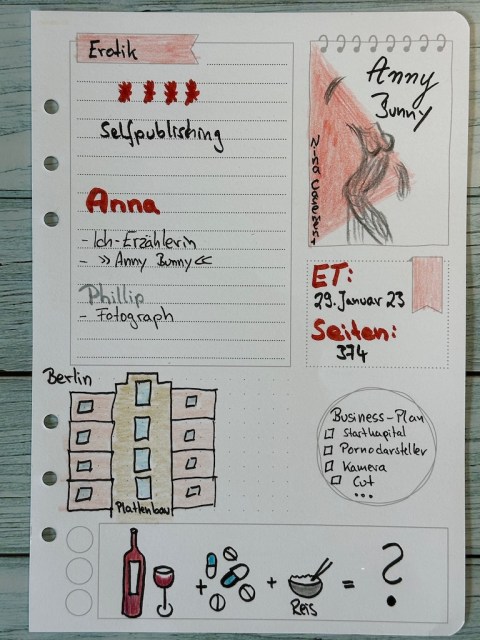 Erotik
Selfpublishing
Anna
- Ich-Erzählerin
- »Anny Bunny«
Phillip
- Fotograph
Anny
Bunny
ET:
29. Januar 23
Seiten:
374
Berlin
Plattenbau
Business-Plan
Startkapital
Pornodarsteller
Kamera
Cut
...
+ + = ?
Reis